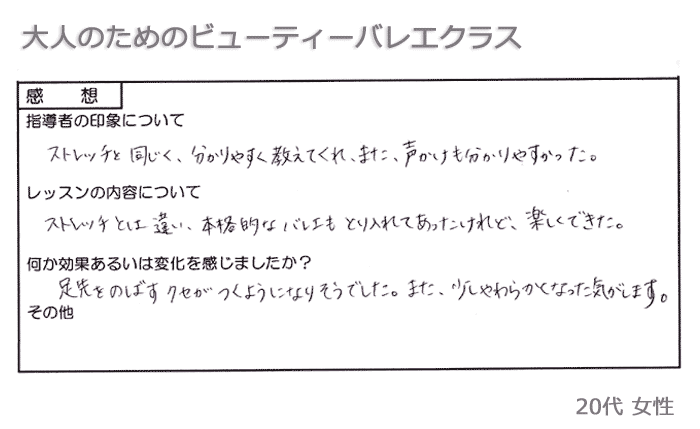 大人のためのビューティーバレエクラス
感 想
指導者の印象について
ストレッチと同じく、分かりやすく教えてくれ、また、声かけも分かりやすかった。
レッスンの内容について
ストレッチとは違い、本格的なバレエもとり入れてあったけれど、楽しくできた。
何か効果あるいは変化を感じましたか？
足先をのばすクセがつくようになりそうでした。また、少しやわらかくなった気がします。
その他
20代 女性